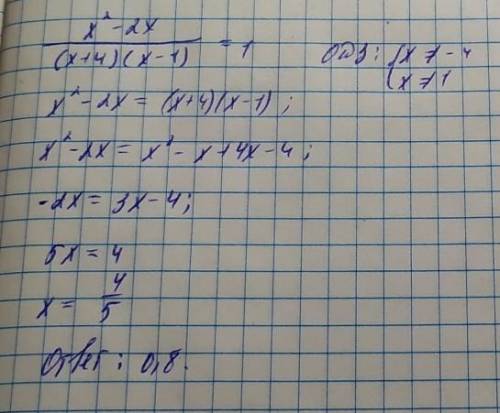 x² - 2x / (x+4)(x-1) = 1
ОДЗ: { x ≠ -4
x ≠ 1
x² - 2x = (x+4)(x-1);
x² - 2x = x² - x + 4x - 4;
-2x = 3x - 4;
5x = 4
x = 4/5
Ответ: 0,8.